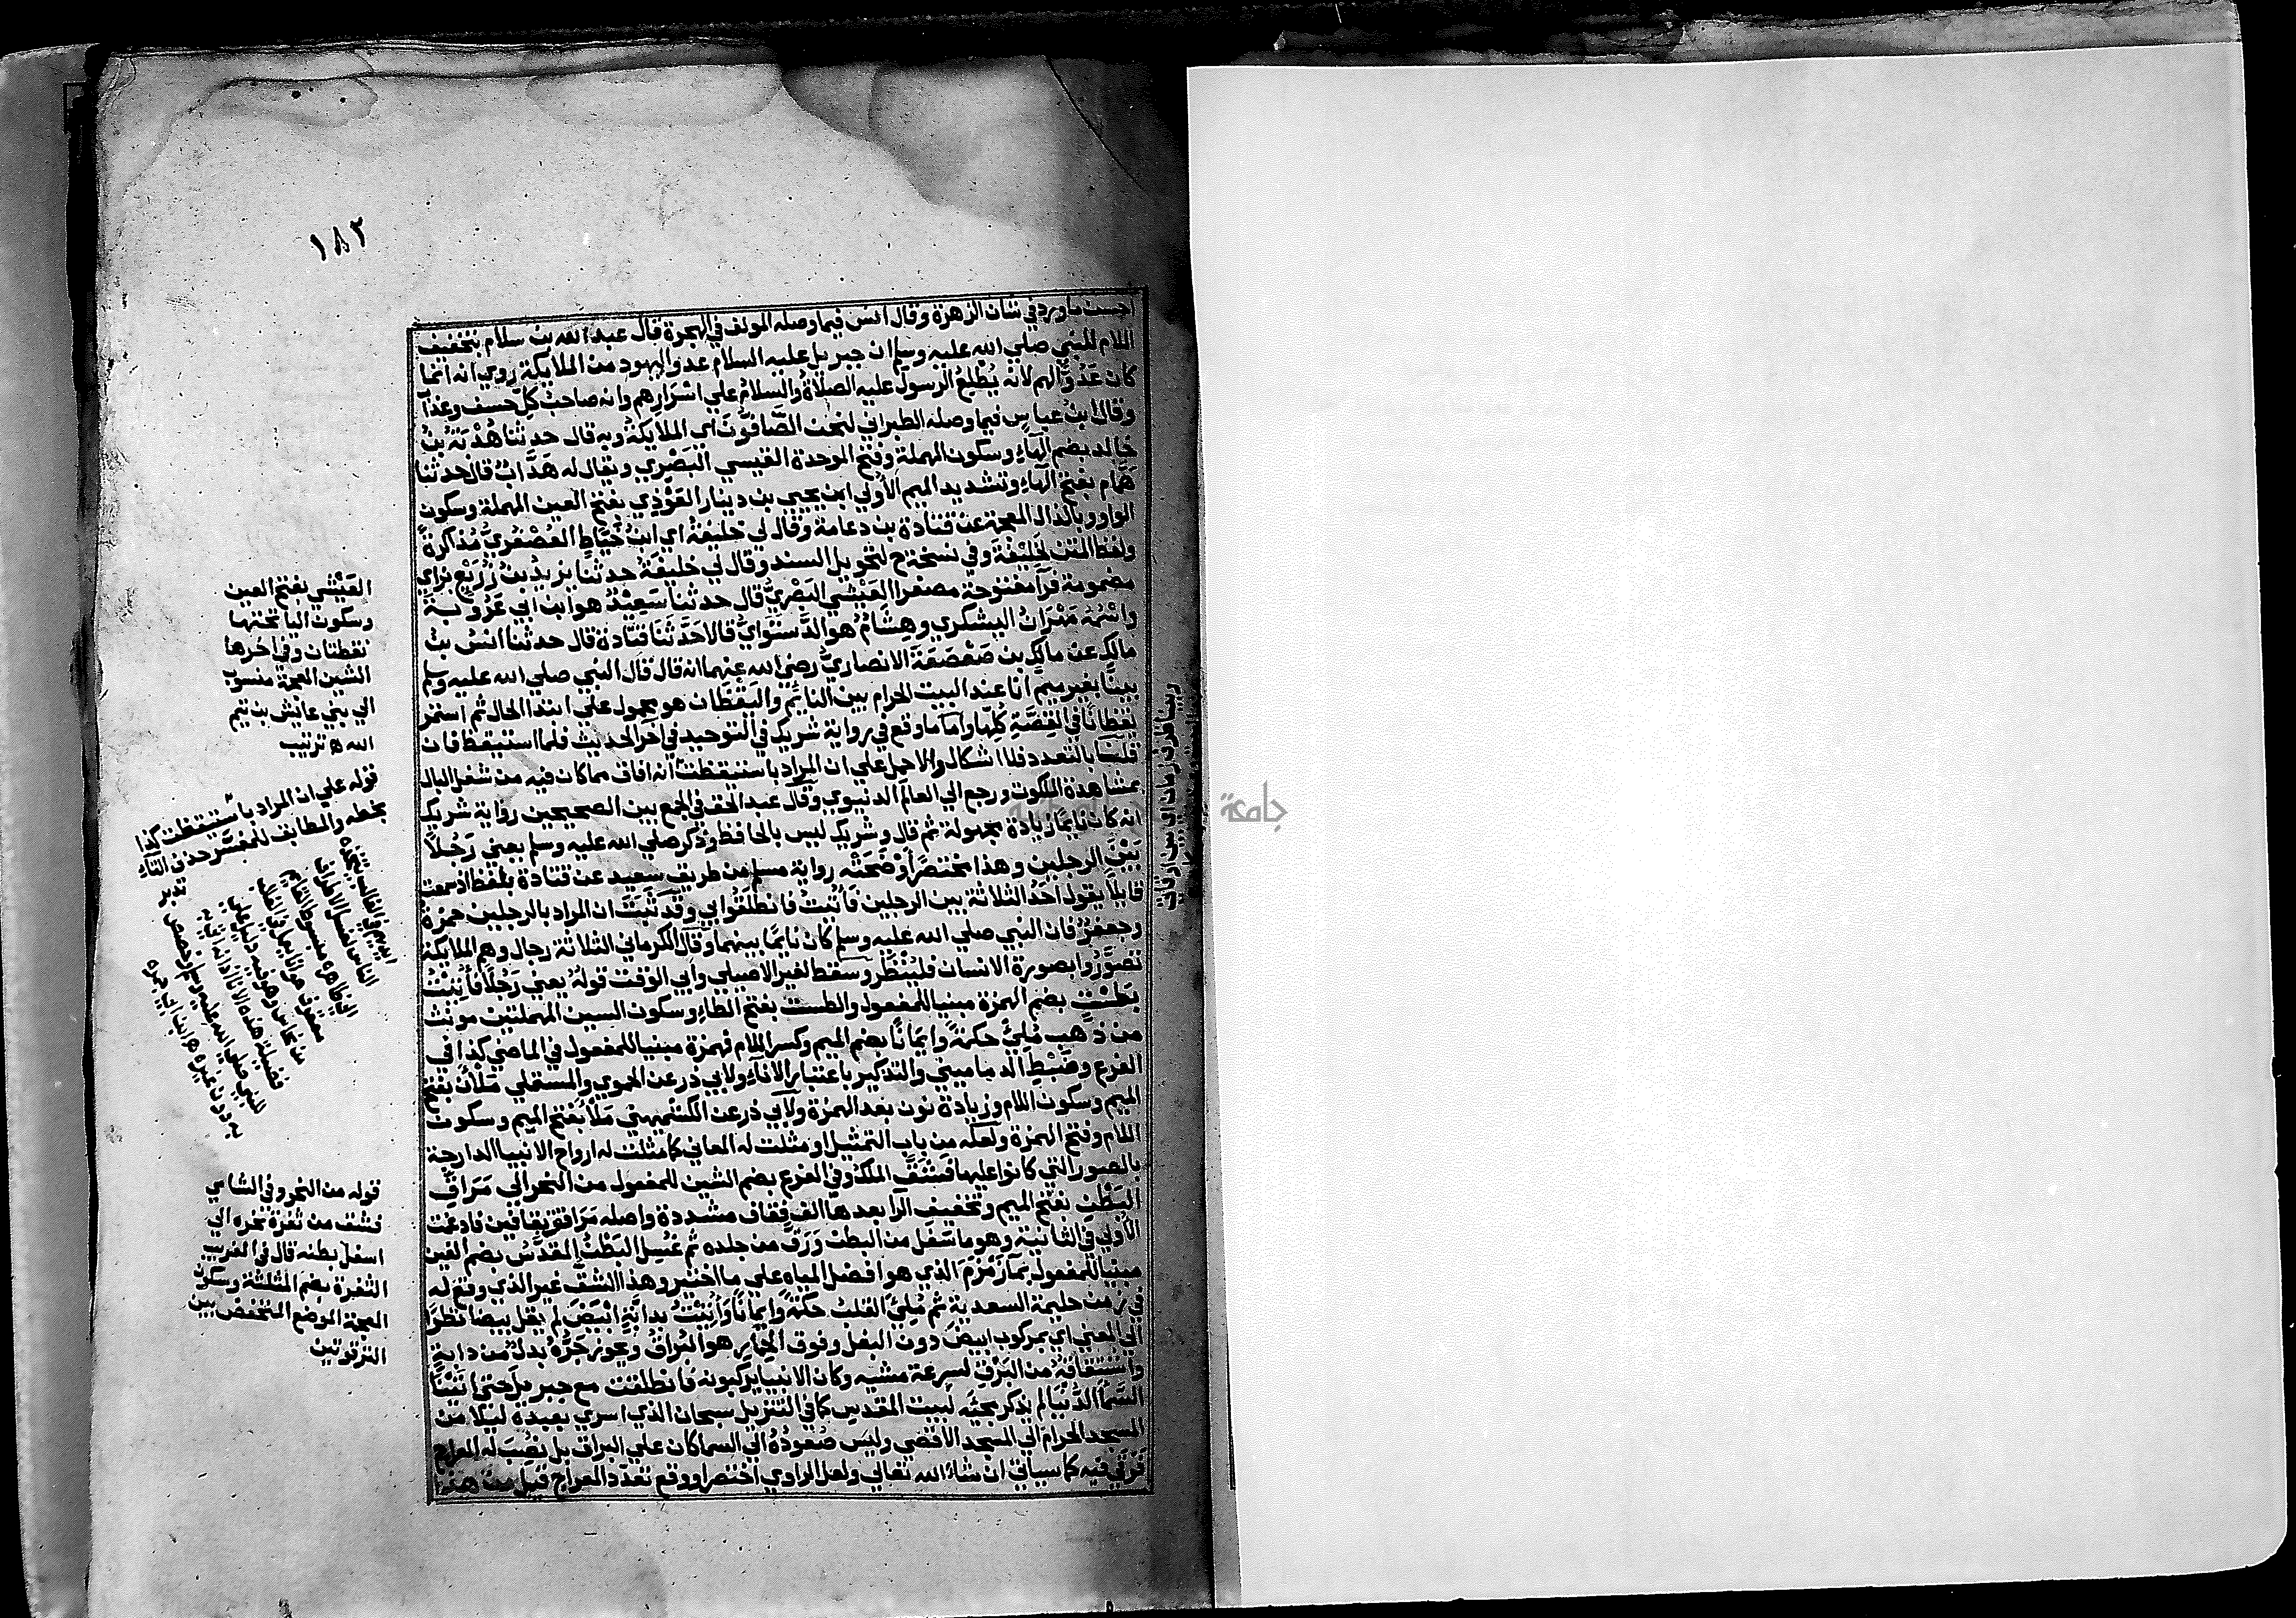 ١٨٢
احسن ما ورد في شان الزهرة وقال انس فيما وصله المولف في الهجرة قال عبد الله بن سلام بتخفيف
اللام للنبي صلي الله عليه وسلم ان جبريل عليه السلام عدو اليهود من الملايكة روي انه انما
كان عَدُوًّا لهم لانه يُطْلِعُ الرسول عليه الصلاة والسلام علي اسْرَارِهم وانه صاحبُ كلِّ خسف وعذاب
وقال ابنُ عباسٍ فيما وصله الطبراني لنحن الصَّافُّونَ اي الملايكةُ وبه قال حدثنا هُدْبَةُ بْنُ
خالد بضم الهاءِ وسكون المهملة وفتح الموحدة القيسي البَصْرِي ويقال له هَدَّابٌ قال حدثنا
هَمَّام بفتح الهاءِ وتشديد الميم الأولي ابن يحيي بن دينار العَوْذِي بفتح العين المهملة وسكون
الواو وبالذال المعجمة عن قتادة بن دعامة وقال لي خليفةُ اي ابنُ خَيَّاطٍ العُصْفُرِيُّ مُذاكرةً
ولفظ المتن لِخَلِيْفَةَ وفي نسخة ح لتحويل السند وقال لي خليفةُ حدثنا يزيدُ بنُ زُرَيْعٍ بزاي
مضمومة فرآ مفتوحة مصغرا العَيْشي البَصْرِيُّ قال حدثنا سَعِيْدٌ هو ابن ابي عَرُوبَةَ
واسْمُهُ مِهْرَانُ اليشكري وهِشَامٌ هو الدَّسْتَوَايُّ قالا حَدَّثَنَا قتادة قال حدثنا انسُ بنُ
مالكٍ عن مالكِ بن صَعْصَعَةَ الانصاريِّ رضي الله عنهما انه قال قال النبي صلي الله عليه وسلم
بينَا بغير ميم انا عند البيت الحرام بين النايمِ واليقظان هو محمول علي ابتدا الحال ثم استمر
يقظانًا في القِصَّةِ كُلِّها واما ما وقع في رواية شريك في التوحيد في آخر الحديث فلما استيقظ فان
قلنا بالتعدد فلا اشكال والا حمل علي ان المراد باستيقظت انه افاق مما كان فيه من شغل البال
بمشاهدة الملكوت ورجع الي العالم الدنيوي وقال عبد الحق في الجمع بين الصحيحين رواية شريك
انه كان نايمًا زيادة مجهولة ثم قال وشريك ليس بالحافظ وذكر صلي الله عليه وسلم يعني رَجُلاً
بَيْنَ الرجلين وهذا مختصرٌ أوْضَحَتْه رواية مسلم من طريق سعيد عن قتادة بلفظ اذ سمعت
قايلاً يقول احَدُ الثلاثة بين الرجلين فَأُتيتُ فانطلقُوا بي وقد ثَبَتَ ان المراد بالرجلين حمزة
وجعفرٌ فان النبي صلي الله عليه وسلم كان نايمًا بينهما وقال الكرماني الثلاثة رجال وهم الملايكة
تصوَّرُوا بصورة الانسان فليُنْظَر وسقط لغير الاصيلي وابي الوقت قولهُ يعني رَجُلاً فأُتِيْتُ
بِطَسْتٍ بضم الهمزة مبنيا للمفعول والطست بفتح الطاءِ وسكون السين المهملتين مونث
من ذَهَبٍ مُلِئَ حكمةً وايمانًا بضم الميم وكسر اللام فهمزة مبنيا للمفعول في الماضي كذا في
الفرع وضَبْطِ الدماميني والتذكير باعتبار الاناءِ ولابي ذر عن الحموي والمستملي مَلآن بفتح
الميم وسكون اللام وزيادة نون بعد الهمزة ولابي ذر عن الكشميهني مَلأَ بفتح الميم وسكون
اللام وفتح الهمزة ولعله من باب التمثيل او مثلت له المعاني كما مثلت له ارواح الانبيا الدارجة
بالصور التي كانوا عليها فشُقَّ الملك وفي الفرع بضم الشين للمفعول من النحر الي مَرَاقِّ
البَطْنِ بفتح الميم وتخفيف الرا بعدها الف فقاف مشددة واصله مَرَاقِقُ بقافين فادغمت
الأولي في الثانية وهو ما سَفَل من البطن ورَقَّ من جلده ثم غُسِلَ البَطْنُ المقدَّسُ بضم الغين
مبنيا للمفعول بمآ زَمْزَمَ الذي هو افضل المياه علي ما اختير وهذا الشقُّ غير الذي وقع له
في زمن حليمة السعدية ثم مُلِئَ القلب حكمةً وايمانًا وأُتيتُ بدابَّةٍ ابيَضَ لم يقل بيضا نظرًا
الي المعني اي بمركوب ابيض دون البغل وفوق الحِمَارِ هو البُراقُ ويجوز جَرُّهُ بدلٌ من دابةٍ
واشتقاقُهُ من البَرْقِ لسرعة مشيه وكان الانبيا يركبونه فانطلقت مع جبريلَ حتي اتيْنَا
السَّمَآ الدُّنْيَا لم يذكر مجيَه لبيت المقدس كما في التنزيل سبحان الذي اسري بعبده ليلا من
المسجد الحرام الي المسجد الاقصي وليس صُعودُهُ الي السما كان علي البراق بل نُصِبَ له المعراج
فرَقي فيه كما سياتي ان شاء الله تعالي ولعل الراوي اختصر او وقع تعدّد المعراج قيل من هذا
العَيْشي بفتح العين
وسكون اليا تحتها
نقطتان وفي اخرها
الشين المعجمة منسوب
الي بني عايش بن تيم
الله ه ترتيب
قوله علي ان المراد باستيقظت كذا
بخطه والمطابق للمفسَّر حذف التاءِ
تدبر
قوله من النحر وفي الشامي
فشق من ثغرة نحره الي
اسفل بطنه قال في الغريب
الثغرة بضم المثلثة وسكون
المعجمة الموضع المنخفض بين
الترقوتين
جامعة